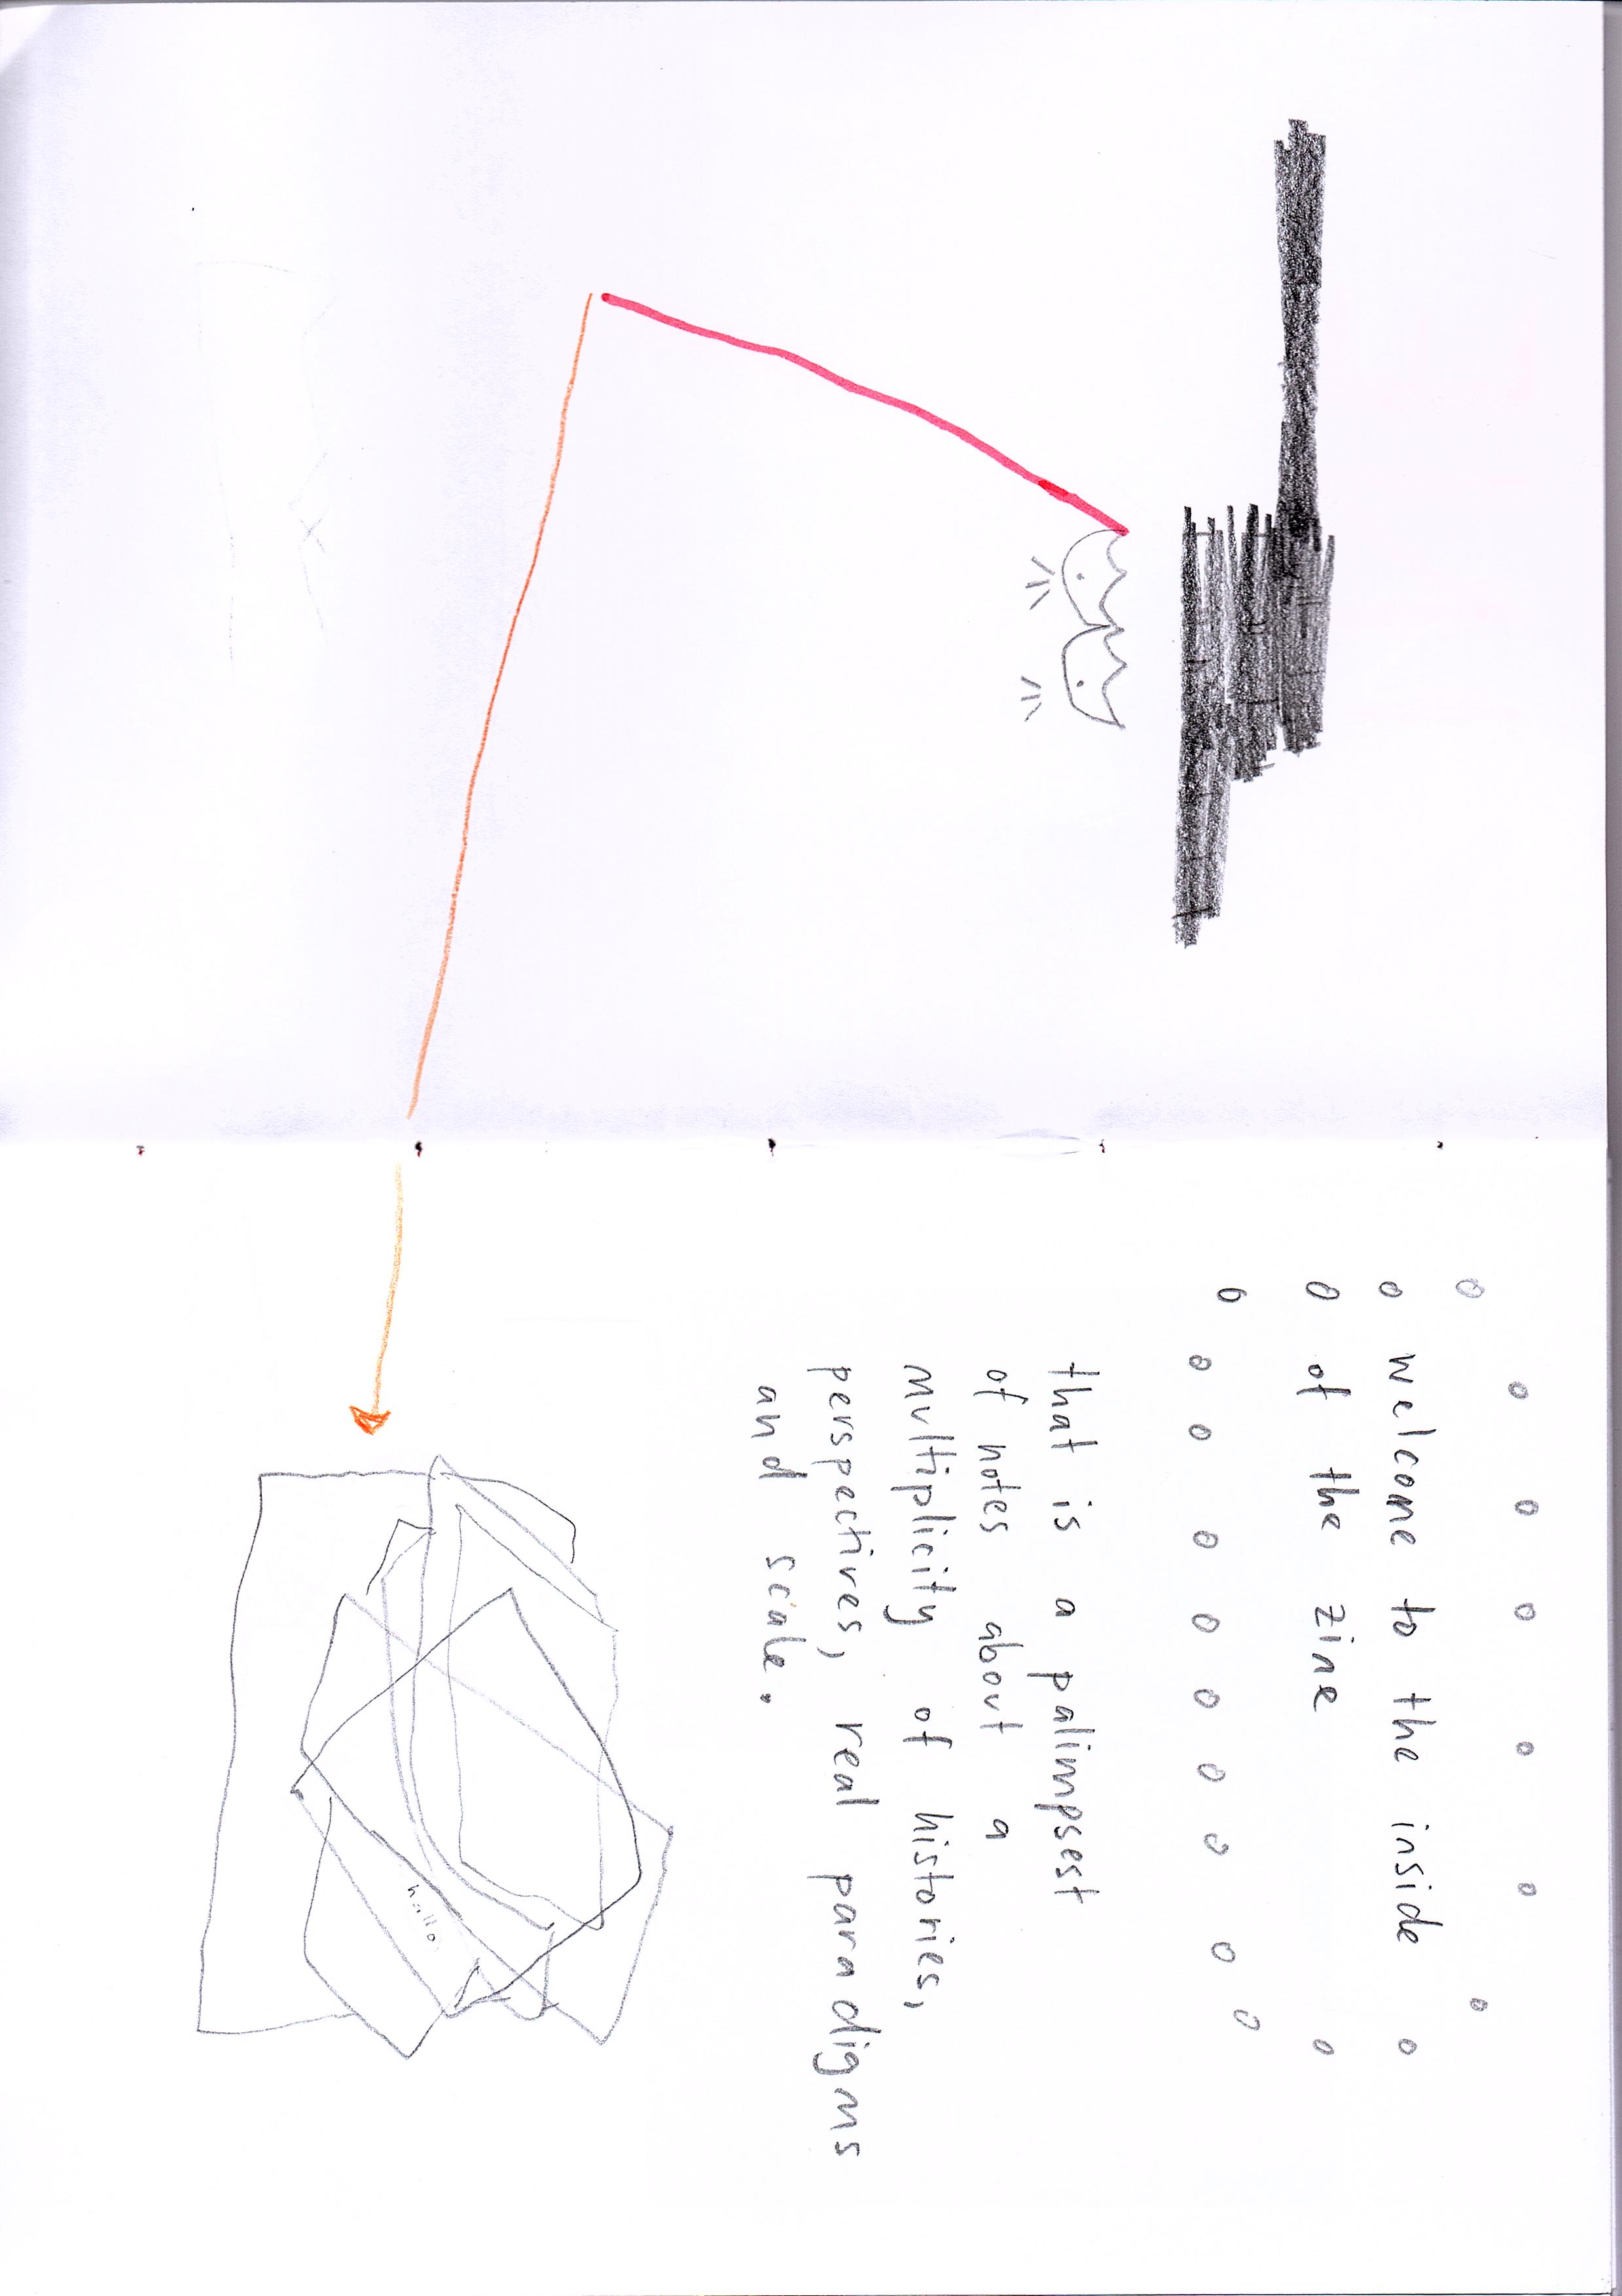 welcome to the inside
of the zine
that is a palimpsest
of notes about a
multiplicity of histories,
perspectives, real paradigms
and scale.
hallo